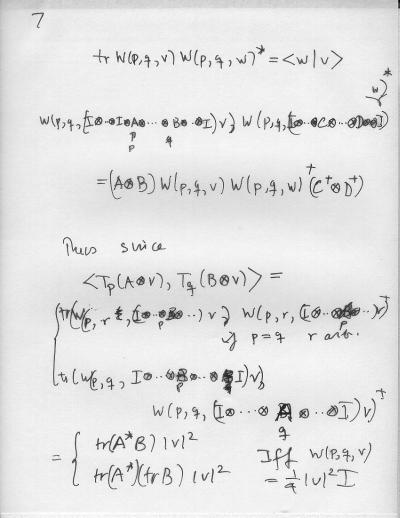 7
tr W(p,q,v) W(p,q,w)* = <w|v>
W(p,q,(I⊗··⊗I⊗A⊗···⊗B⊗··⊗I)v) W(p,q,(I⊗··⊗C⊗···⊗D⊗⊗I)w)*
p q
p
= (A⊗B) W(p,q,v) W(p,q,w)† (C†⊗D†)
Thus since
<Tp(A⊗v), Tq(B⊗v)> =
{ tr(W(p,r, (I⊗···⊗B⊗··)v) W(p,r,(I⊗···⊗ ⊗··)v)†
p p
if p=q r arb.
tr(W(p,q, I⊗···⊗B⊗··⊗I)v)
p
W(p,q,(I⊗···⊗A⊗···⊗I)v)†
q
= { tr(A*B) |v|²
tr(A*)(trB) |v|²
Iff W(p,q,v)
= 1/4 |v|² I